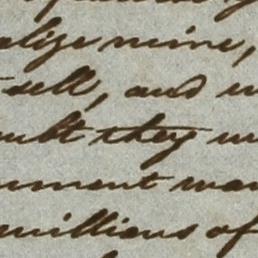 alize mine,
sell, and
ult they
ment
millions of